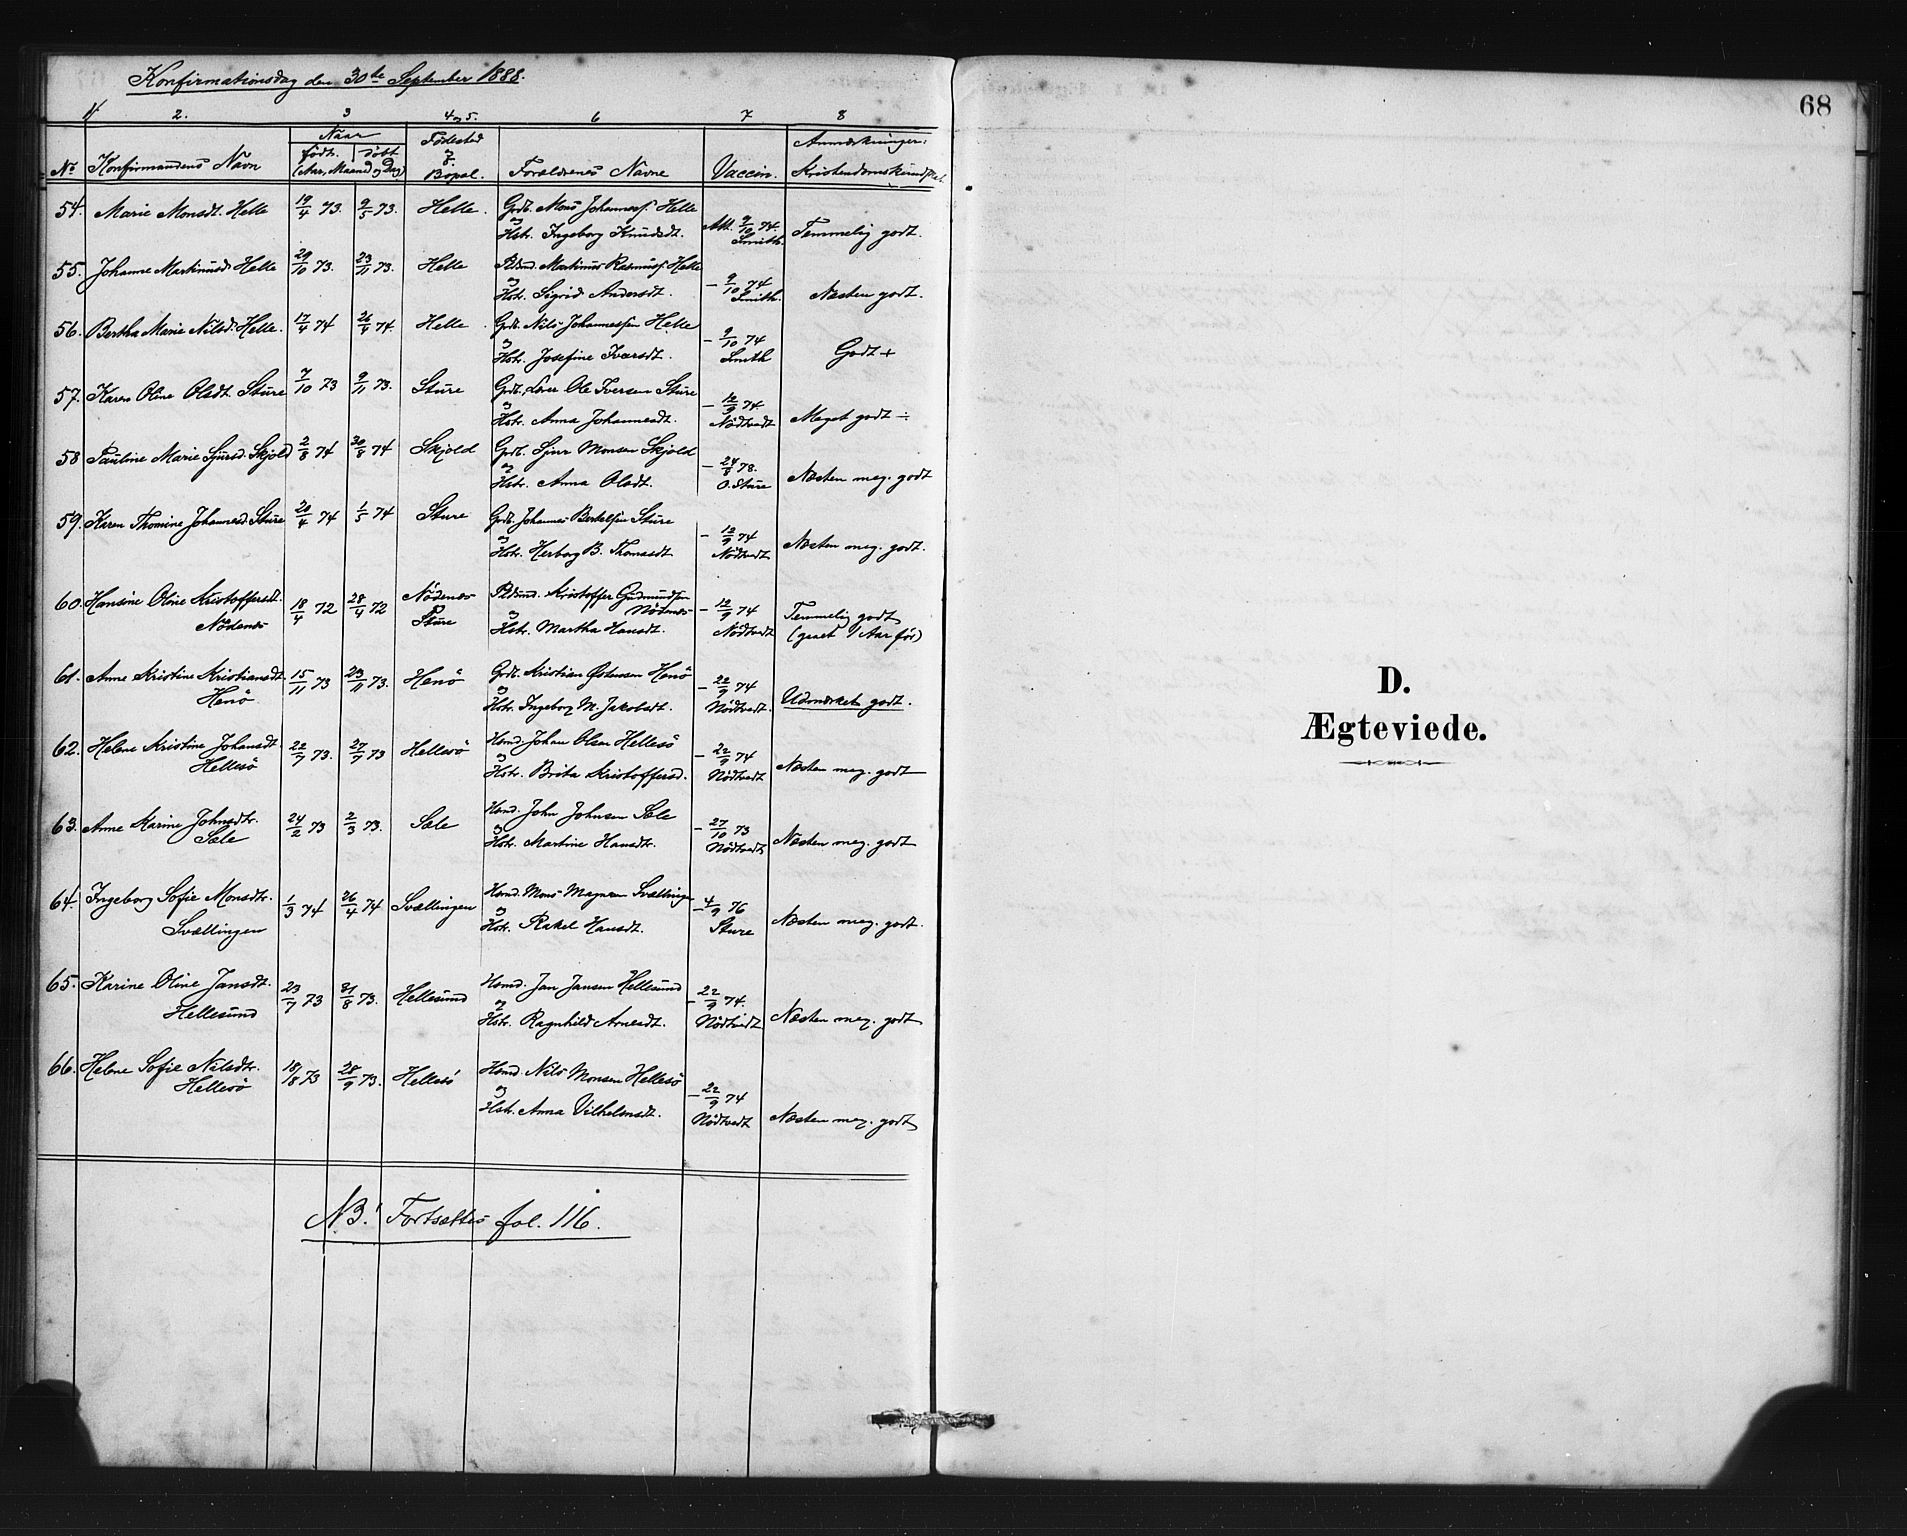 Konfirmationsdag den 30te September 1888.
1 2. 3 4 og 5. 6 7 8
No Konfirmandens Navn Naar født. døbt (Aar, Maaned og Dag) Fødested og Bopæl. Forældrenes Navne Vaccin. Anmærkninger: Kristendomskundskab.
54. Marie Monsdt. Helle 19/4 73. 9/5 73. Helle. Grdb. Mons Johanness. Helle
og Hstr. Ingeborg Knudsdt. Att. 9/10 74. Smith. Temmelig godt.
55. Johanne Martinusdt. Helle 29/10 73. 23/11 73. Helle Martinus Rasmuss. Helle
og Hstr. Sigrid Andersdt. - 9/10 74 Smith. Næsten godt.
56. Bertha Marie Nilsdt. Helle. 17/4 74 26/4 74. Helle. Grdb. Nils Johannessen Helle
og Hstr. Josefine Ivarsdt. - 9/10 74 Smith Godt +
57. Karen Oline Olsdt. Sture 7/10 73 9/11 73. Sture Grdb. Ole Iversen Sture
og Hstr. Anna Johannesdt. - 12/9 74. Nödtvedt Meget godt ÷
58 Pauline Marie Sjursd. Skjold 2/8 74 30/8 74 Skjold Grdb. Sjur Monsen Skjold
og Hstr. Anna Olsdt. - 24/8 78. O. Sture Næsten meg. godt
59. Karen Thomine Johannesd. Sture 20/4 74 1/5 74 Sture Grdb. Johannes Bertelsen Sture
og Hstr. Herborg B. Thomasdt. - 12/9 74 Nödtvedt Næsten meg. godt.
60. Hansine Oline Kristoffersdt. Nödenes 18/4 72 28/4 72 Nödenes Sture Kristoffer Gudmundsen Nödenes
og Hstr. Martha Hansdt. - 12/9 74 Nödtvedt Temmelig godt (gaaet 1 Aar før)
61. Anne Kristine Kristiansdt. Henö 15/11 73 23/11 73. Henö Grdb. Kristian Østensen Henö
og Hstr. Ingeborg M. Jakobsdt. - 22/9 74 Nödtvedt. Udmærket godt.
62. Helene Kristine Johansdt. Hellesö 22/7 73. 27/7 73 Hellesö Hsmd. Johan Olsen Hellesö
og Hstr. Brita Kristoffersd. - 22/9 74 Nödtvedt Næsten meg. godt
63. Anne Karine Johnsdtr. Sæle 24/2 73 2/3 73. Sæle Hsmd. John Johnsen Sæle
og Hstr. Martine Hansdtr. - 27/10 73 Nödtvedt Næsten meg. godt
64. Ingeborg Sofie Monsdtr. Svællingen 1/3 74 26/4 74 Svællingen Hsmd. Mons Magnsen Svællingen
og Hstr. Rakel Hansdt. - 4/9 76 Sture Næsten meg. godt.
65. Karine Oline Jansdt. Hellesund 23/7 73 31/8 73. Hellesund Hsmd. Jan Jansen Hellesund
og Hstr. Ragnhild Arnesdt. - 22/9 74. Nödtvedt Næsten meg. godt
66. Helene Sofie Nilsdtr. Hellesö 18/8 73 28/9 73. Hellesö Hsmd. Nils Monsen Hellesö
og Hstr. Anna Vilhelmsdt. - 22/9 74 Nödtvedt Næsten meg. godt
NB! Fortsættes fol. 116.
68
D.
Ægteviede.